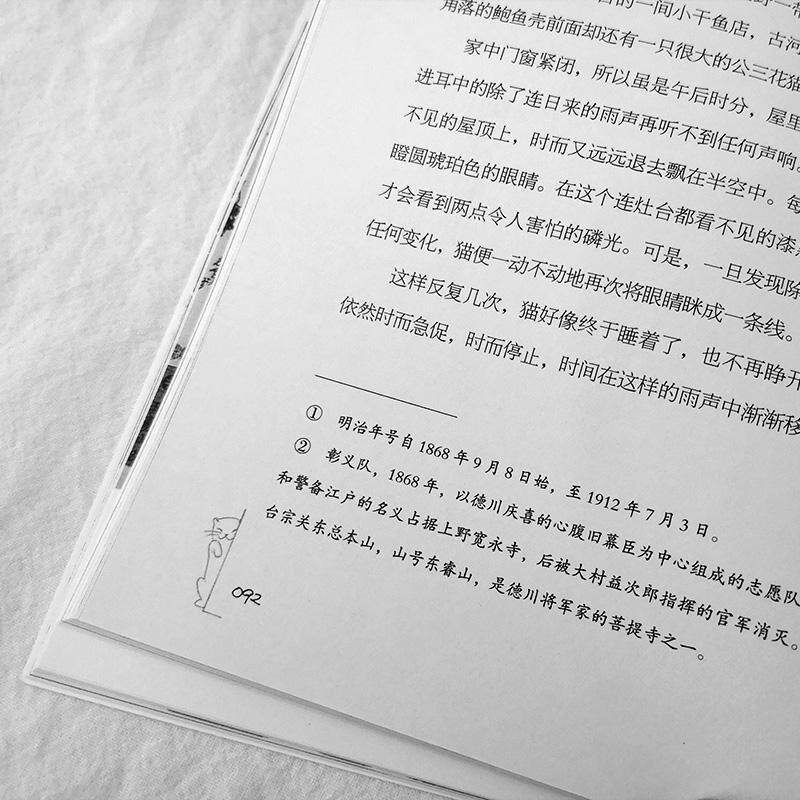 的一间小干鱼店，古河
角落的鲍鱼壳前面却还有一只很大的公三花猫
家中门窗紧闭，所以虽是午后时分，屋里
进耳中的除了连日来的雨声再听不到任何声响。
不见的屋顶上，时而又远远退去飘在半空中。每
瞪圆琥珀色的眼睛。在这个连灶台都看不见的漆
才会看到两点令人害怕的磷光。可是，一旦发现除
任何变化，猫便一动不动地再次将眼睛眯成一条线。
这样反复几次，猫好像终于睡着了，也不再睁开
依然时而急促，时而停止，时间在这样的雨声中渐渐移
① 明治年号自1868年9月8日始，至1912年7月3日。
② 彰义队，1868年，以德川庆喜的心腹旧幕臣为中心组成的志愿队
和警备江户的名义占据上野宽永寺，后被大村益次郎指挥的官军消灭。
台宗关东总本山，山号东睿山，是德川将军家的菩提寺之一。
092